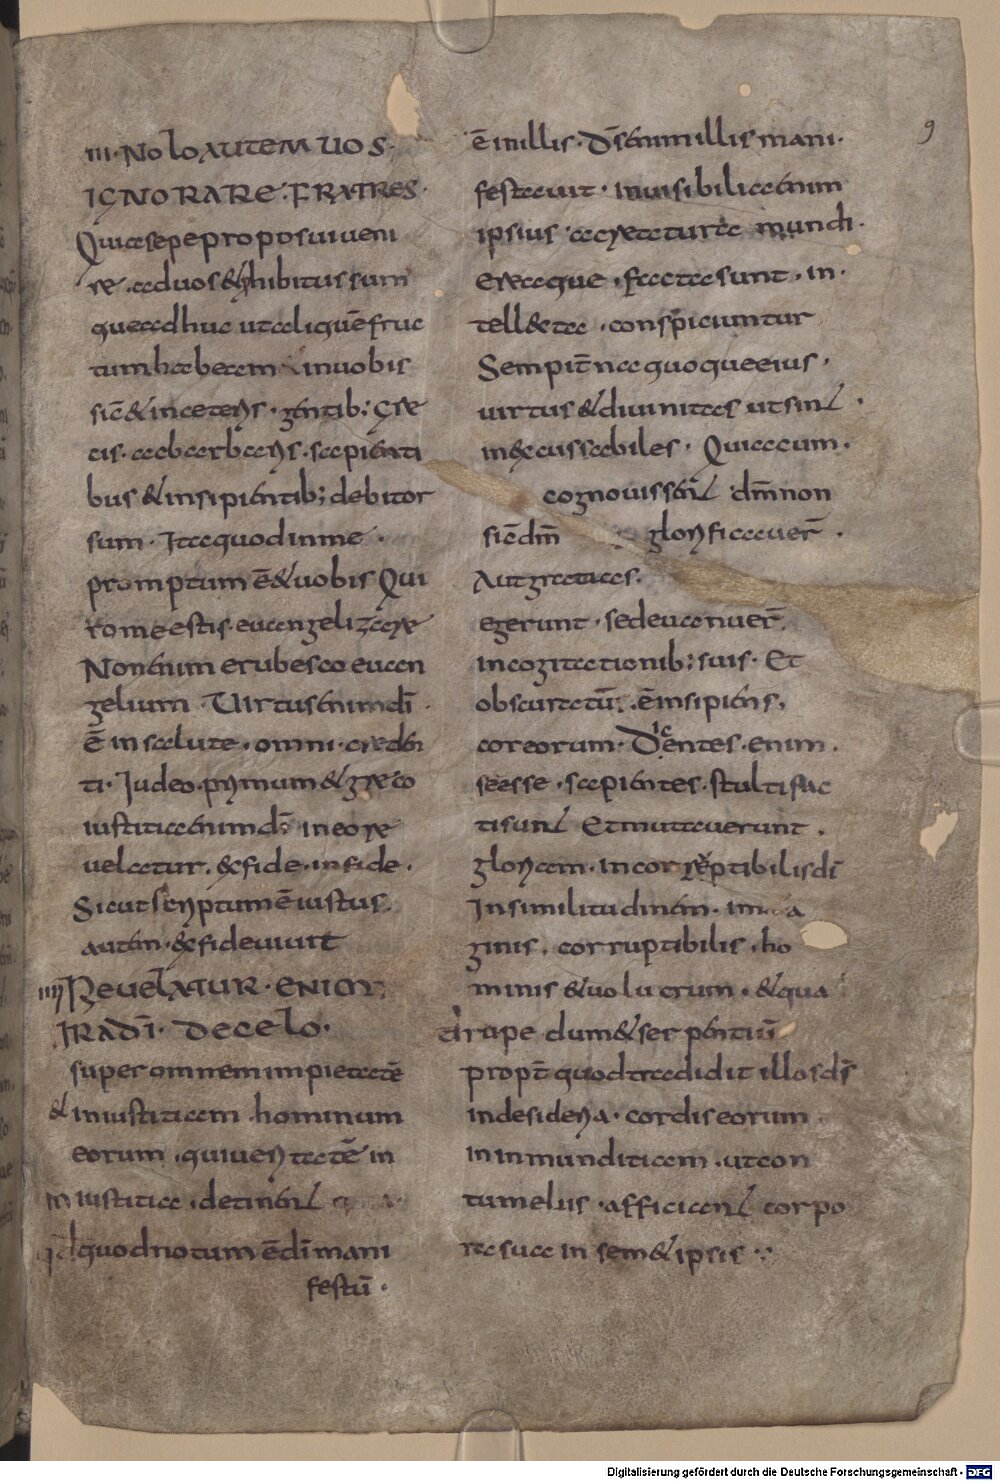 III· Nolo autem uos·
ignorare· fratres·
Quia sepe proposui ueni
re· ad uos & hibitus sum
que adhuc ut aliquē fruc
tum haberem inuobis
sic̄ & incetērıs· gentib; gre
cis· ac barbarıs· sapienti
bus & insipientib; debitor
sum· Ita quod in me·
promptum ē & uobis Qui
rome estis· euangelizare
Non enim erubesco euan
gelium· Uirtus enim dī·
ē in salute· omni· creden
ti· Iudeo· primum & greco
iustitia enim dī in eo re
uelatur· ex fide· in fide·
Sicut scriptum ē iustus
autem· ex fide uiuit
IIII Reuelatur· enim
Ira dī· de celo·
super omnem impietatē
& iniustitiam· hominum
eorum· qui ueritatē in
in iustitia· detinent
qd quod notum ē dī mani
festū·
9
ē in illis· Ds̄ enim illis mani·
festauit· Inuisibilia enim
ipsius· a creatura mundi·
ex ea que· facta sunt· in·
tell&cta· conspiciuntur
Sempit̄na quoque eius·
uirtus & diuinitas ut sint·
inexcussabiles· Quia cum·
cognouissent dm̄ non
sic̄ dm̄ glorificauer̄·
Aut gratias·
egerunt· sed euanuer̄·
in cogitationib; suis· Et
obscuratū· ē insipiens·
cor eorum· Dicentes· enim·
se esse· sapientes· stulti fac
ti sunt Et mutauerunt·
gloriam· incorruptibilis dī
In similitudinem· ima
ginis· corruptibilis· ho
minis & uolucrum· & qua
drupedum & serpentiū
propt̄ quod tradidit illos ds̄
in desideria· cordis eorum
in inmunditiam· ut con
tumeliis· afficiant corpo
ra sua in sem& ipsis
Digitalisierung gefördert durch die Deutsche Forschungsgemeinschaft - DFG